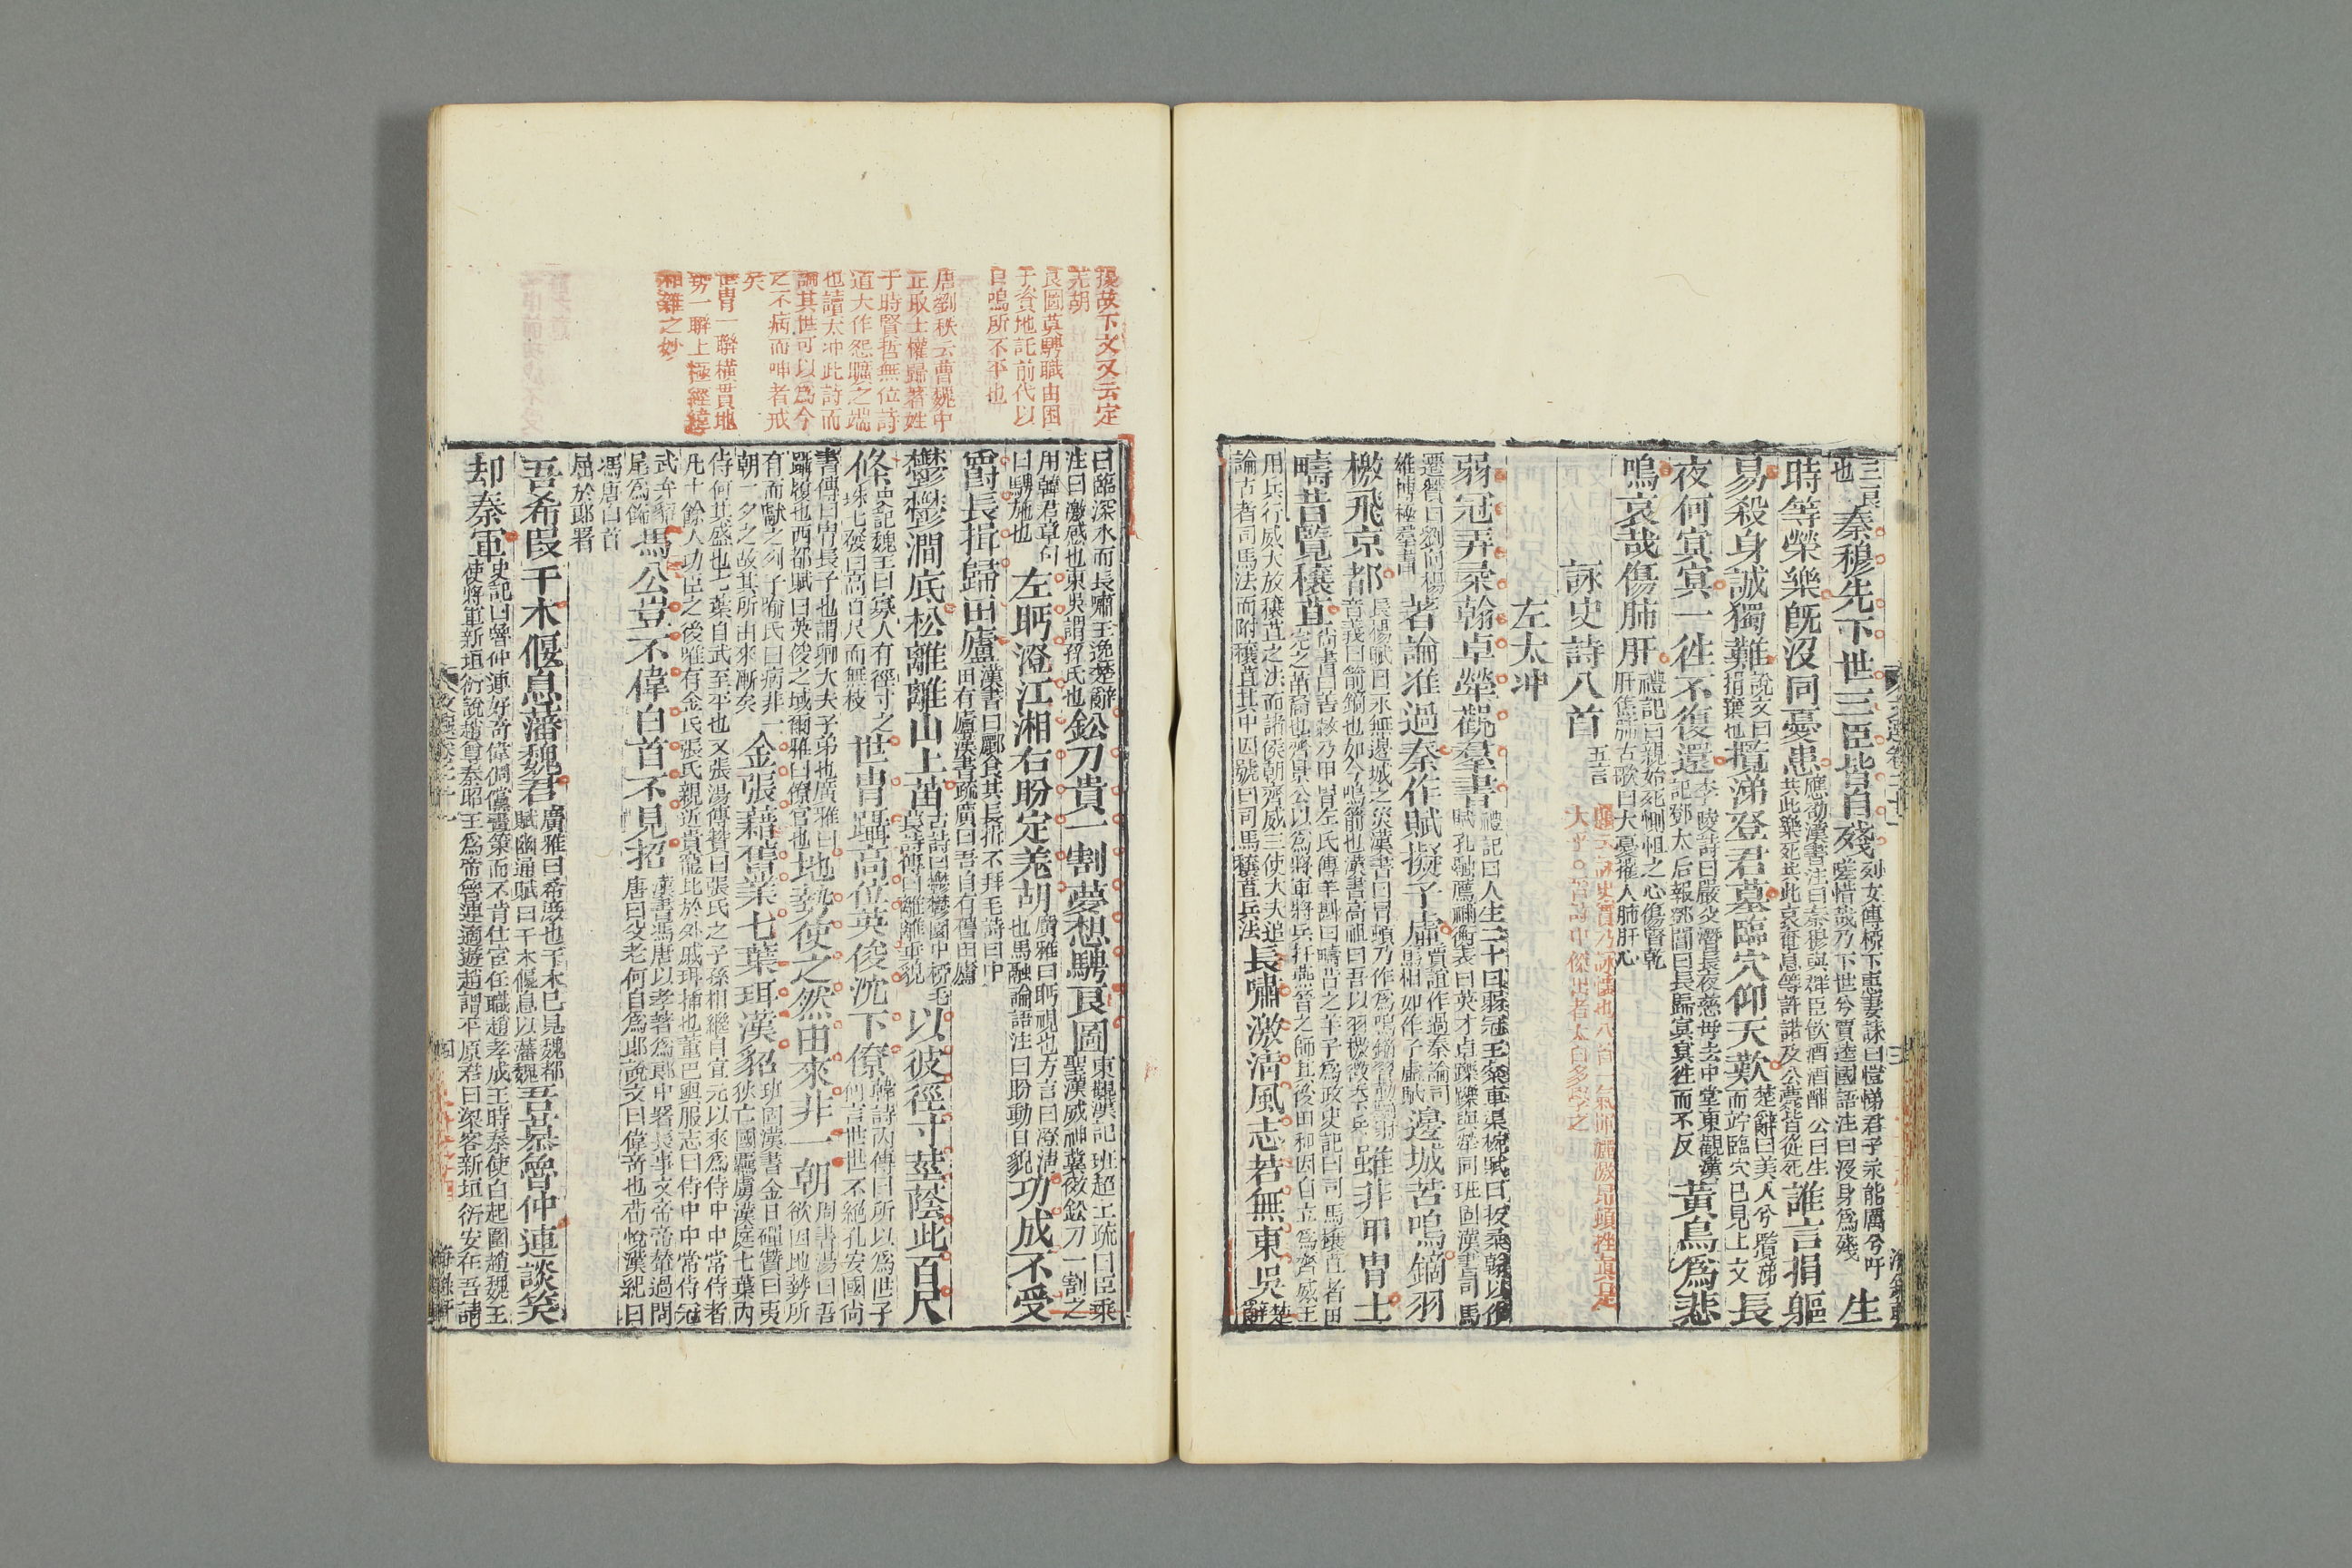 三良
也
秦穆先下世三臣皆自殘
列女傳柳下惠妻誄曰愷悌君子永能厲兮吁
嗟惜哉乃下世兮賈逵國語注曰沒身爲殘
生
時等榮樂旣沒同憂患
應劭漢書注曰秦穆與羣臣飲酒酒酣公曰生
共此樂死共此哀奄息等許諾及公薨皆從死
誰言捐軀
易殺身誠獨難
說文曰
捐棄也
攬涕登君墓臨穴仰天歎
楚辭曰美人兮攬涕
而竚臨穴已見上文
長
夜何冥冥一往不復還
李陵詩曰嚴父潛長夜慈母去中堂東觀漢
記鄧太后報鄧閶曰長歸冥冥往而不反
黃鳥爲悲
鳴哀哉傷肺肝
禮記曰親始死惻怛之心傷腎乾
肝焦肺古歌曰大憂摧人肺肝心
詠史詩八首
五言
題云詠史實乃詠懷也八首一氣揮灑激昂頓挫真是
大手○晉詩中傑出者太白多學之
左太冲
弱冠弄柔翰卓犖觀羣書
禮記曰人生二十曰弱冠王粲車渠椀賦曰援柔翰以作
賦孔融薦禰衡表曰英才卓躒躒與犖同班固漢書司馬
遷贊曰劉向揚
雄博極羣書
著論准過秦作賦擬子虛
賈誼作過秦論司
馬相如作子虛賦
邊城苦鳴鏑羽
檄飛京都
長楊賦曰永無邊城之災漢書曰冒頓乃作爲鳴鏑習勒騎射
音義曰箭鏑也如今鳴箭也漢書高祖曰吾以羽檄徵天下兵
雖非甲冑士
疇昔覽穰苴
尚書曰善敹乃甲冑左氏傳羊斟曰疇昔之羊子爲政史記曰司馬穰苴者田
完之苗裔也齊景公以爲將軍將兵扞燕晉之師其後田和因自立爲齊威王
用兵行威大放穰苴之法而諸侯朝齊威王使大夫追
論古者司馬法而附穰苴其中因號曰司馬穰苴兵法
長嘯激清風志若無東吳
楚
辭
援故下文又云定
羌胡
良圖莫騁職由困
于資地託前代以
自鳴所不平也
唐劉秩云曹魏中
正取士權歸著姓
于時賢哲無位詩
道大作怨曠之端
也讀太冲此詩而
論其世可以爲今
之不病而呻者戒
矣
世冑一聯橫貫地
勢一聯上極經緯
相錯之妙
曰臨深水而長嘯王逸楚辭
注曰激感也東吳謂孫氏也
鈆刀貴一割夢想騁良圖
東觀漢記班超上疏曰臣乘
聖漢威神冀俲鈆刀一割之
用韓君章句
曰騁施也
左眄澄江湘右盼定羌胡
廣雅曰眄視也方言曰澄清
也馬融論語注曰盼動目貌
功成不受
爵長揖歸田廬
漢書曰酈食其長揖不拜毛詩曰中
田有廬漢書疏廣曰吾自有舊田廬
鬱鬱澗底松離離山上苗
古詩曰鬱鬱園中柳毛
萇詩傳曰離離垂貌
以彼徑寸莖蔭此百尺
條
史記魏王曰寡人有徑寸之
珠七發曰高百尺而無枝
世冑躡高位英俊沈下僚
韓詩內傳曰所以爲世子
何言世世不絕孔安國尚
書傳曰冑長子也謂卿大夫子弟也廣雅曰
躡履也西都賦曰英俊之域爾雅曰僚官也
地勢使之然由來非一朝
周書湯曰吾
欲因地勢所
有而獻之列子喻氏曰病非一
朝一夕之故其所由來漸矣
金張藉舊業七葉珥漢貂
班固漢書金日磾贊曰夷
狄亡國羈虜漢庭七葉內
侍何其盛也七葉自武至平也又張湯傳贊曰張氏之子孫相繼自宣元以來爲侍中中常侍者
凡十餘人功臣之後唯有金氏張氏親近貴寵比於外戚珥插也董巴輿服志曰侍中中常侍冠
武弁貂
尾爲飾
馮公豈不偉白首不見招
漢書馮唐以孝著爲郎中署長事文帝帝輦過問
唐曰父老何自爲郎說文曰偉奇也荀悅漢紀曰
馮唐白首
屈於郎署
吾希段干木偃息藩魏君
廣雅曰希庶也干木已見魏都
賦幽通賦曰干木偃息以藩魏
吾慕魯仲連談笑
却秦軍
史記曰魯仲連好奇偉俶儻畫策而不肯仕宦任職趙孝成王時秦使白起圍趙魏王
使將軍新垣衍說趙尊秦昭王爲帝魯連適遊趙謂平原君曰梁客新垣衍安在吾請
四
海錄軒